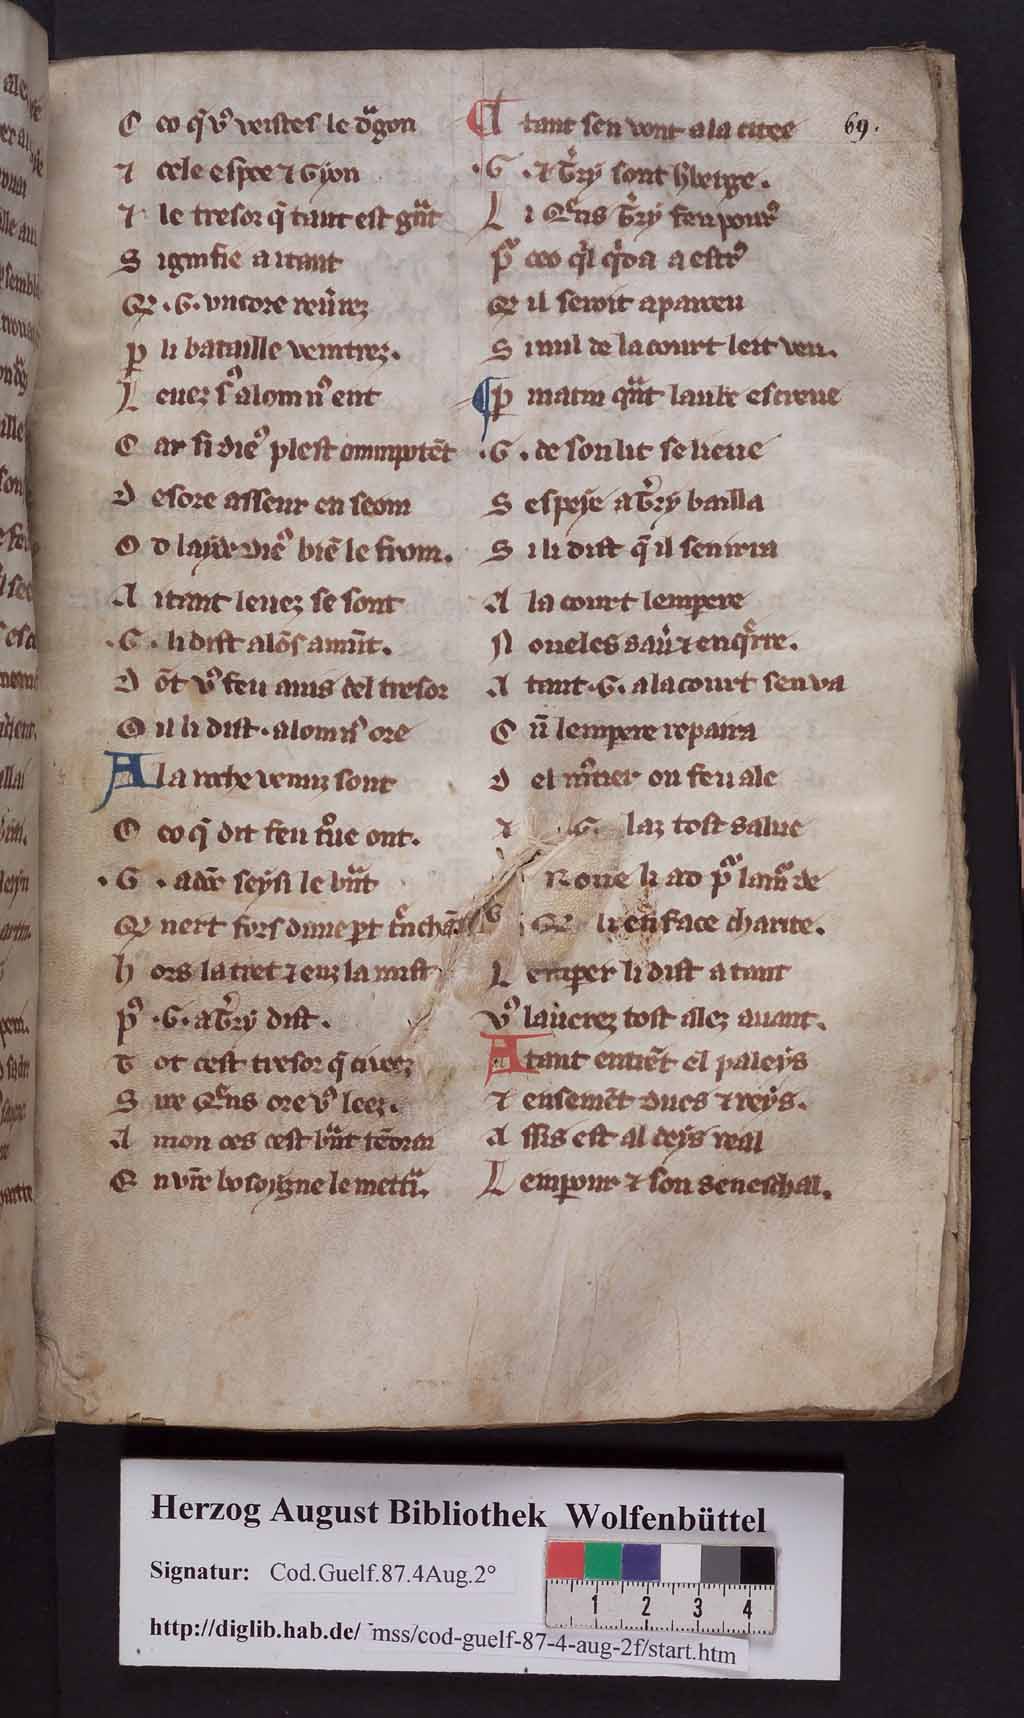 C eo q̃ vͦ veistes le dᵃgon
⁊ cele espee ⁊ Gyon
⁊ le tresor q̃ tant est gᵃnt
S ignifie aitant
Q̃ .G. uncore ren̾rez
ꝑ li bataille veintrez.
L euez sᵘ alom nᵒ ent
C ar si dieᵘ plest omnipotẽt
D esore asseur en seom
O d laÿde dieᵘ biẽ le from.
A itant leuez se sont
.G. li dist alõs amũt.
D õt vͦ feu auis del tresor
O il li dist. alom nᵒ ore
A la roche venuz sont
C eo q̃ dit feu tͦue ont.
.G. adõc seysi le bᵃnt
Q̃ nert fors dune pᵃrt tᵃnchãt
H ors la tret ⁊ enz la mist
pᵘs .G. a Gͥry dist.
T ot cest tresor q̃ ci veez
S ire Qͥens ore vͦ leez.
A mon oes cest bᵃnt tẽdrai
E n vr̃e besoygne le mettᵃi.
A tant sen vont a la citee
.G. ⁊ Gͥry sont hb̃erge.
L i Qͥens Gͥry feu pour᷑
pᵃ ceo qͥl qͥda a estr᷑
Q̃ il seroit aparceu
S i nul de la court leit veu.
¶ ꝑ matin qᵃnt laube escreue
.G. de son lit se lieue
S espeÿe a Gͥry bailla
S i li dist q̃ il sen irra
A la court lemꝑere
N oueles sau̾ ⁊ enqͥrre.
A tant .G. a la court sen va
C ũ lemꝑere repaira
D el mᵒtier ou feu ale
⁊ .G. laz tost salue
Roue li ad pᵃ lamᵘ de
Q̃ li en face charite.
L emꝑer li dist a tant
vͦ lau̾erez tost alez auant.
A tant entrẽt el paleÿs
⁊ ensemẽt ducs ⁊ reÿs.
A ssis est al deÿs real
L emꝑour ⁊ son seneschal.
69.
Herzog August Bibliothek Wolfenbüttel
Signatur: Cod.Guelf.87.4Aug.2°
http://diglib.hab.de/ mss/cod-guelf-87-4-aug-2f/start.htm
1 2 3 4